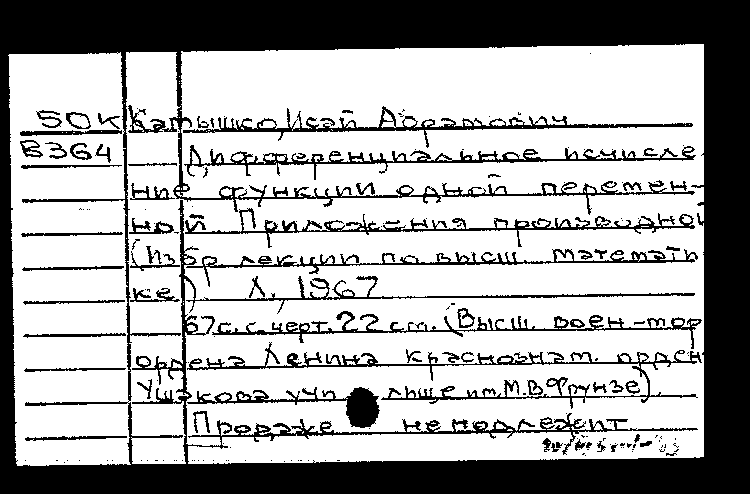 50К Катышко, Исай Абрамович
В364 Дифференциальное исчисле
ние функции одной перемен-
ной. Приложения производной
(Избр лекции по высш. математи
ке). Л., 1967
67с. с черт. 22 см. (Высш. воен-мор
ордена Ленина краснознам. орден
Ушакова учи лище им. М.В. Фрунзе).
Продаже не подлежит